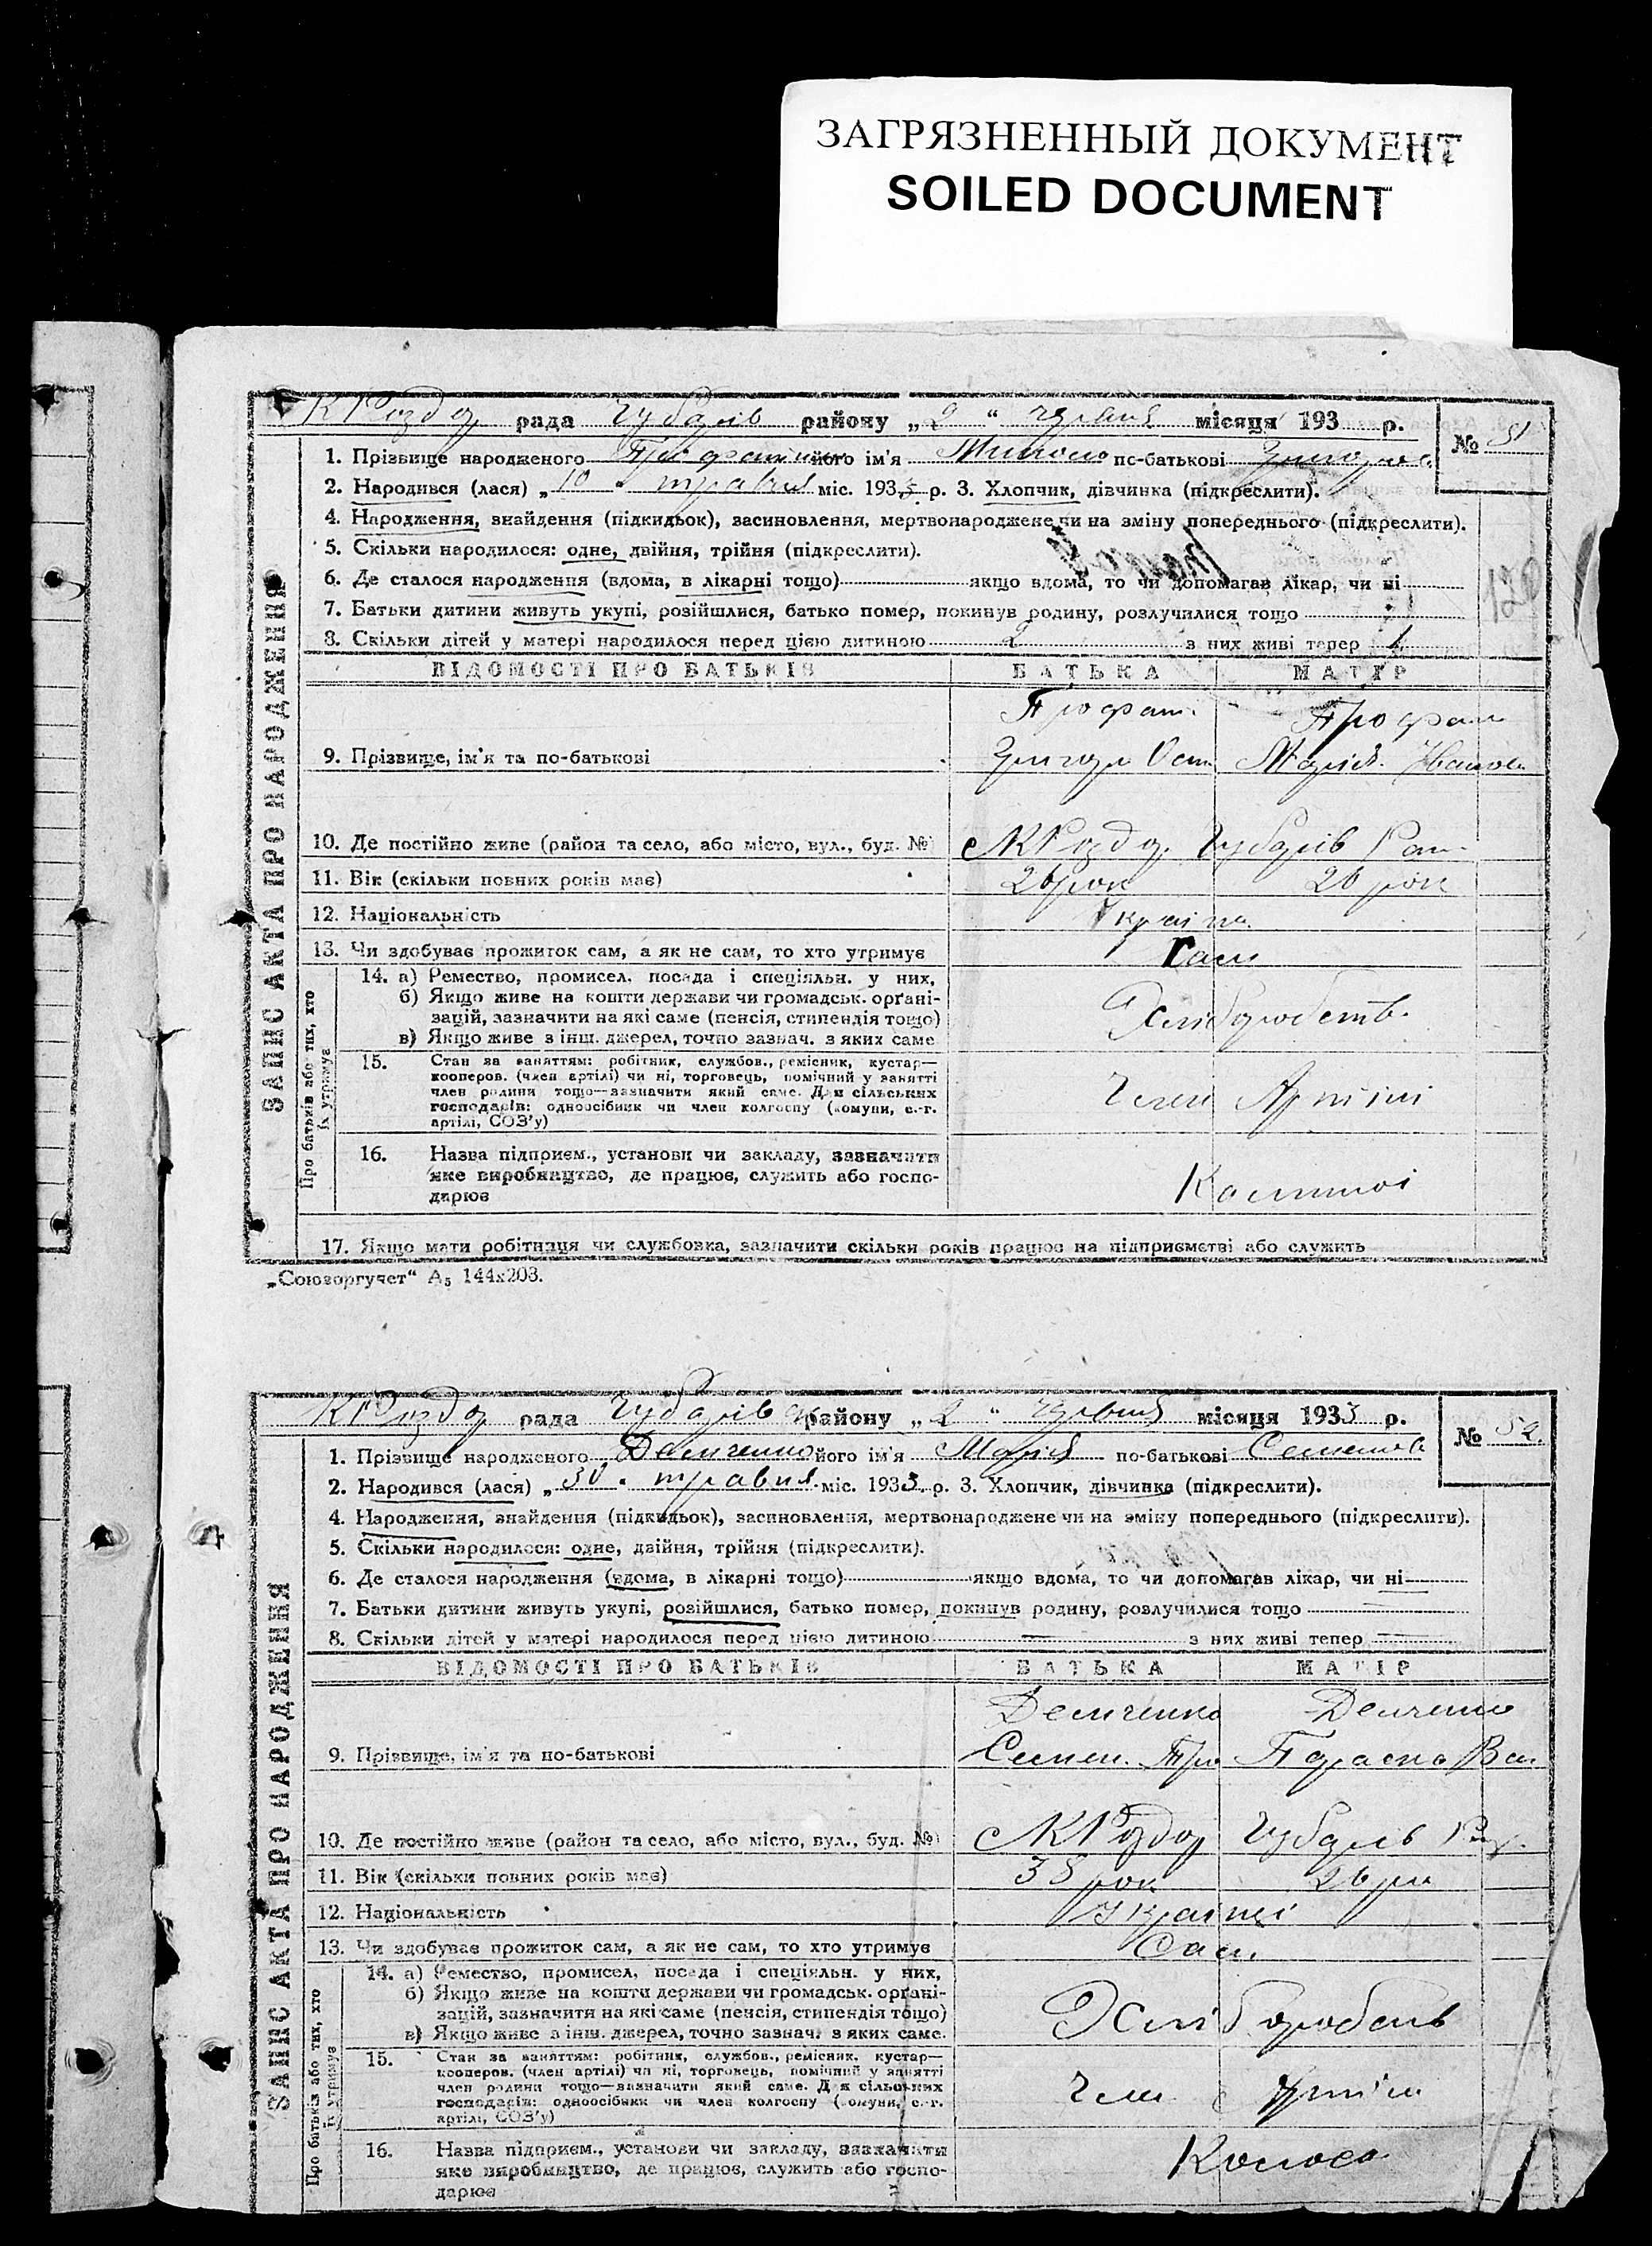 ЗАГРЯЗНЕННЫЙ ДОКУМЕНТ
SOILED DOCUMENT
рада Чубарів району „2“ червня місяця 193 р.
№ 51
1. Прізвище народженого його ім'я Микола по-батькові
2. Народився (лася) „10 травня міс. 1933 р. 3. Хлопчик, дівчинка (підкреслити).
4. Народження, знайдення (підкидьок), засиновлення, мертвонароджене чи на зміну попереднього (підкреслити).
5. Скільки народилося: одне, двійня, трійня (підкреслити).
6. Де сталося народження (вдома, в лікарні тощо) якщо вдома, то чи допомагав лікар, чи ні
7. Батьки дитини живуть укупі, розійшлися, батько помер, покинув родину, розлучилися тощо
8. Скільки дітей у матері народилося перед цією дитиною 2 з них живі тепер 1
ВІДОМОСТІ ПРО БАТЬКІВ БАТЬКА МАТІР
9. Прізвище, ім'я та по-батькові
10. Де постійно живе (район та село, або місто, вул., буд. №)
11. Вік (скільки повних років має) 26 рок 26 рок
12. Національність
13. Чи здобуває прожиток сам, а як не сам, то хто утримує Сам
14. а) Ремество, промисел, посада і спеціяльн. у них,
б) Якщо живе на кошти держави чи громадськ. орґані-
зацій, зазначити на які саме (пенсія, стипендія тощо)
в) Якщо живе з інш. джерел, точно зазнач. з яких саме
15. Стан за заняттям: робітник, службов., ремісник, кустар—
кооперов. (член артілі) чи ні, торговець, помічний у занятті
член родини тощо—зазначити який саме. Для сільських
господарів: одноосібник чи член колгоспу (комуни, с.-г.
артілі, СОЗ'у)
Член Артілі
16. Назва підприєм., установи чи закладу, зазначити
яке виробництво, де працює, служить або госпо-
дарює
17. Якщо мати робітниця чи службовка, зазначити скільки років працює на підприємстві або служить
ЗАПИС АКТА ПРО НАРОДЖЕННЯ
Про батьків або тих, хто
їх утримує
„Союзоргучет“ А₅ 144х203.
рада Чубарів району „2“ червня місяця 1933 р.
№ 52.
1. Прізвище народженого Демченко його ім'я Марія по-батькові Семенов
2. Народився (лася) „30 травня міс. 1933 р. 3. Хлопчик, дівчинка (підкреслити).
4. Народження, знайдення (підкидьок), засиновлення, мертвонароджене чи на зміну попереднього (підкреслити).
5. Скільки народилося: одне, двійня, трійня (підкреслити).
6. Де сталося народження (вдома, в лікарні тощо) якщо вдома, то чи допомагав лікар, чи ні
7. Батьки дитини живуть укупі, розійшлися, батько помер, покинув родину, розлучилися тощо
8. Скільки дітей у матері народилося перед цією дитиною — з них живі тепер —
ВІДОМОСТІ ПРО БАТЬКІВ БАТЬКА МАТІР
Демченко Демченко
9. Прізвище, ім'я та по-батькові Семен. Тро Параска Вас
10. Де постійно живе (район та село, або місто, вул., буд. №)
11. Вік (скільки повних років має) 38 рок 26 рок
12. Національність
13. Чи здобуває прожиток сам, а як не сам, то хто утримує Сам
14. а) Ремество, промисел, посада і спеціяльн. у них,
б) Якщо живе на кошти держави чи громадськ. орґані-
зацій, зазначити на які саме (пенсія, стипендія тощо)
в) Якщо живе з інш. джерел, точно зазнач. з яких саме.
15. Стан за заняттям: робітник, службов., ремісник, кустар—
кооперов. (член артілі) чи ні, торговець, помічний у занятті
член родини тощо—зазначити який саме. Для сільських
господарів: одноосібник чи член колгоспу (комуни, с.-г.
артілі, СОЗ'у)
16. Назва підприєм., установи чи закладу, зазначити
яке виробництво, де працює, служить або госпо-
дарює
ЗАПИС АКТА ПРО НАРОДЖЕННЯ
Про батьків або тих, хто
їх утримує